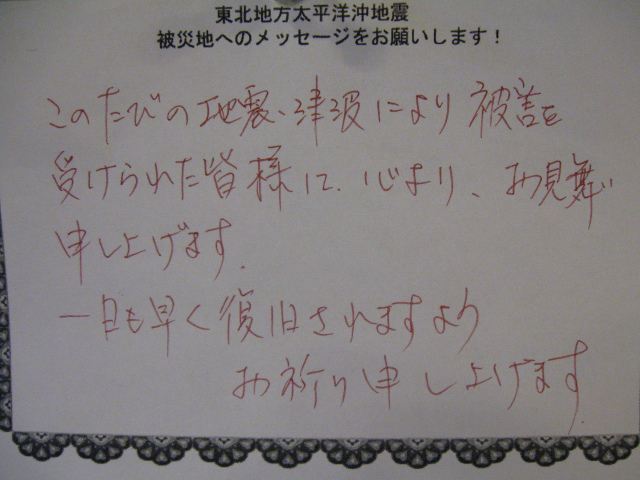 東北地方太平洋沖地震
被災地へのメッセージをお願いします！
このたびの地震、津波により被害を
受けられた皆様に、心より、お見舞い
申し上げます。
一日も早く復旧されますよう
お祈り申し上げます